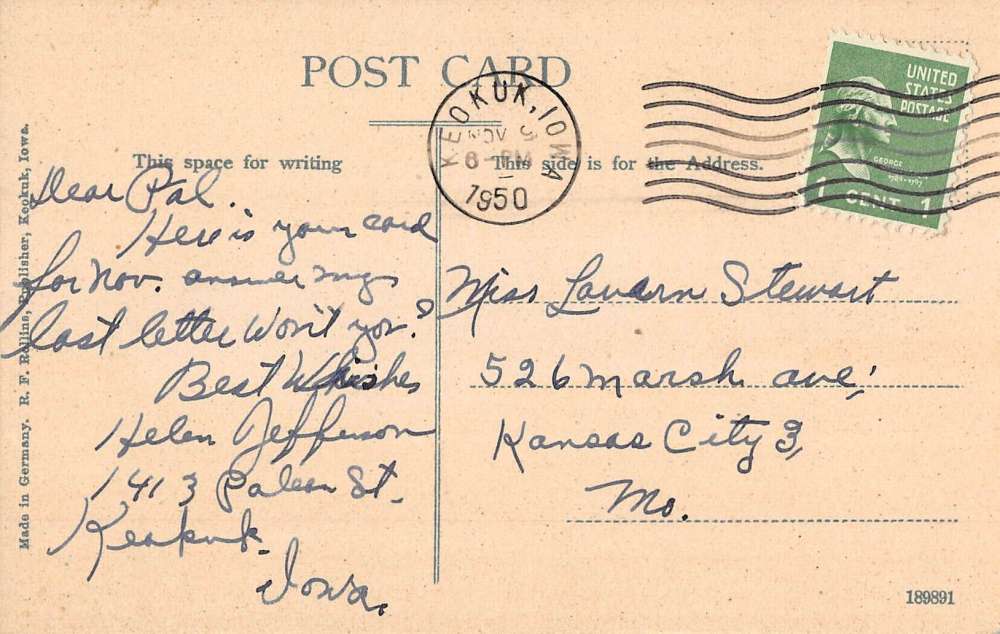 POST CARD
This space for writing
This side is for the Address.
KEOKUK, IOWA
NOV
6 - PM
1950
UNITED
STATES
POSTAGE
GEORGE
1 CENT 1
Dear Pal.
Here is your card
for Nov. answer my
last letter Won't you?
Best Whishes
Helen Jefferson
1413 St.
Keokuk
Iowa.
Miss Lavern Stewart
526 Marsh ave,
Kansas City 3,
Mo.
Made in Germany. R. F. Rollins, Publisher, Keokuk, Iowa.
189891